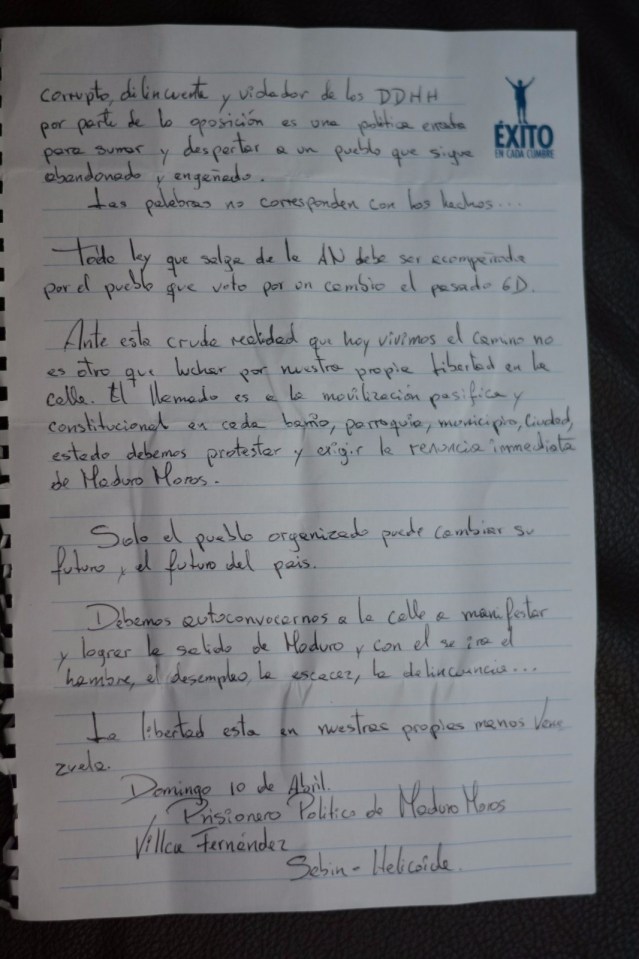 corrupto, delincuente y violador de los DDHH
por parte de la oposición es una politica errada
para sumar y despertar a un pueblo que sigue
abandonado y engañado.
ÉXITO
EN CADA CUMBRE
Las palabras no corresponden con los hechos...
Toda ley que salga de la AN debe ser acompañada
por el pueblo que voto por un cambio el pasado 6D.
Ante esta cruda realidad que hoy vivimos el camino no
es otro que luchar por nuestra propia libertad en la
calle. El llamado es a la movilización pasifica y
constitucional en cada barrio, parroquia, municipio, Ciudad,
estado debemos protestar y exigir la renuncia inmediata
de Maduro Moros.
Solo el pueblo organizado puede cambiar su
futuro y el futuro del pais.
Debemos autoconvocarnos a la calle a manifestar
y lograr la salida de Maduro y con el se ira el
hambre, el desempleo, la escacez, la delincuencia...
La libertad esta en nuestras propias manos Vene
zuela.
Domingo 10 de Abril.
Prisionero Politico de Maduro Moros
Villca Fernández
Sebin - Helicoide.